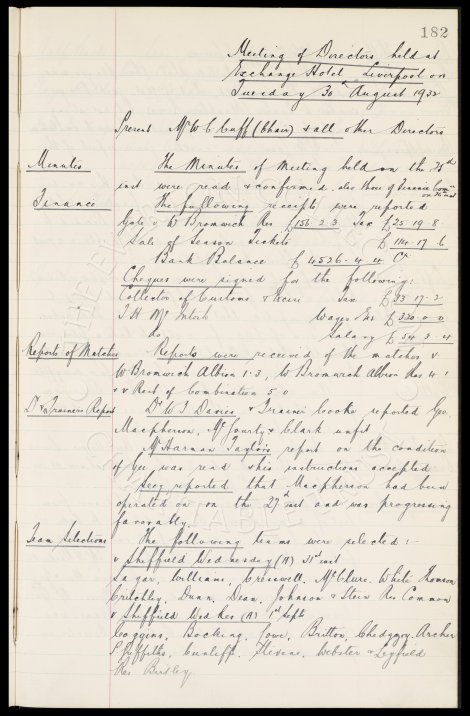 182
Meeting of Directors held at
Exchange Hotel Liverpool on
Tuesday 30th August 1932
Present Mr W C Cuff (Chair) & all other Directors
Minutes The Minutes of Meeting held on the 26th
inst were read & confirmed. also those of Finance Comm
on 30th inst
Finance The following receipts were reported
Gate v W Bromwich Res £156-2-3 Tax £25-19-8
Sale of Season Tickets £114-17-6
Bank Balance £4526-4-4 Cr
Cheques were signed for the following:
Collector of Customs & Excise Tax £93-17-2
T H McIntosh Wages &c £330-0-0
do Salary £54-3-4
Reports of Matches Reports were received of the matches v
W Bromwich Albion 1-3, W Bromwich Albion Res 4-1
& v Rest of Combination 5-0
Dr & Trainers Report Dr W T Davies & Trainer Cooke reported Gee,
Macpherson, McGourty & Clark unfit
Mr Harman Taylors report on the condition
of Gee was read & his instructions accepted
Secy reported that Macpherson had been
operated on on the 27th inst and was progressing
favorably.
Team Selections The following teams were selected :-
v Sheffield Wednesday (A) 31st inst
Sagar, Williams, Cresswell, McClure, White Thomson
Critchley, Dunn, Dean, Johnson & Stein Res Common
v Sheffield Wed Res (A) 1st Septr
Coggins, Bocking, Lowe, Britton, Chedgzoy, Archer
P Griffiths, Cunliffe, Stevens, Webster & Leyfield
Res Birtley